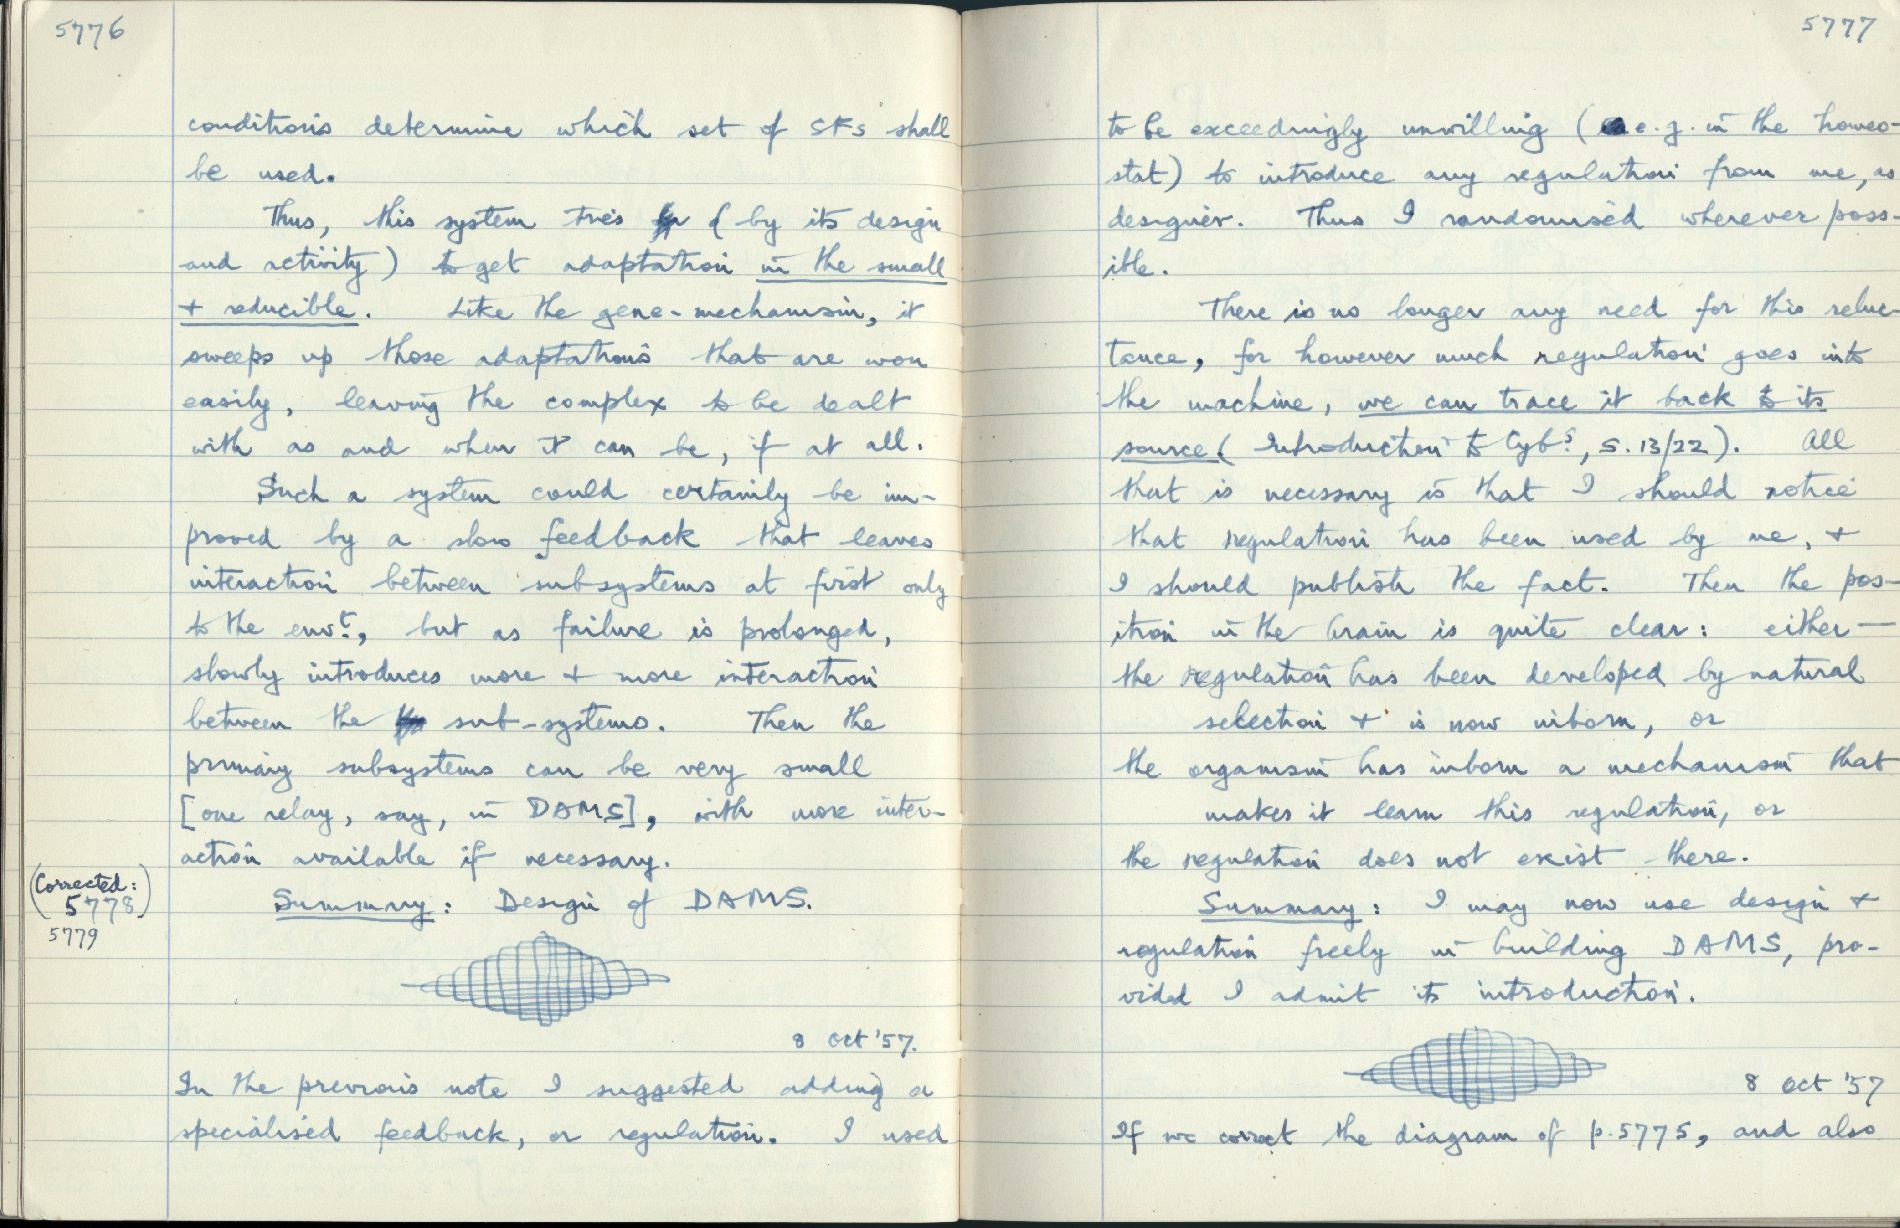 5776
conditions determine which set of SFs shall
be used.
Thus, this system tries (by its design
and activity) to get adaptation in the small
+ reducible. Like the gene-mechanism, it
sweeps up those adaptations that are won
easily, leaving the complex to be dealt
with as and when it can be, if at all.
Such a system could certainly be im-
proved by a slow feedback that leaves
interaction between subsystems at first only
to the envt., but as failure is prolonged,
slowly introduces more + more interaction
between the sub-systems. Then the
primary subsystems can be very small
[one relay, say, in DAMS], with more inter-
action available if necessary.
(Corrected:
5778)
5779
Summary: Design of DAMS.
8 Oct '57.
In the previous note I suggested adding a
specialised feedback, or regulation. I used
5777
to be exceedingly unwilling (e.g. in the homeo-
stat) to introduce any regulation from me, as
designer. Thus I randomised wherever poss-
ible.
There is no longer any need for this reluc-
tance, for however much regulation goes into
the machine, we can trace it back to its
source (Introduction to Cybs., S.13/22). All
that is necessary is that I should notice
that regulation has been used by me, +
I should publish the fact. Then the pos-
ition in the brain is quite clear: either —
the regulation has been developed by natural
selection + is now inborn, or
the organism has inborn a mechanism that
makes it learn this regulation, or
the regulation does not exist there.
Summary: I may now use design +
regulation freely in building DAMS, pro-
vided I admit its introduction.
8 Oct '57
If we correct the diagram of p.5775, and also